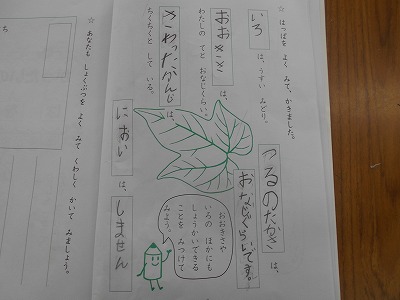 ☆ はっぱを よく みて、かきました。
いろ は、うすい みどり。
おおきさ は、
わたしの てと おなじくらい。
さわったかんじ は、
ちくちくと して いる。
つるのたかさ は、
おなじくらいです。
におい は、しません
おおきさや
いろの ほかにも
しょうかいできる
ことを みつけて
みよう。
☆ あなたも しょくぶつを よく みて くわしく かいて みましょう。